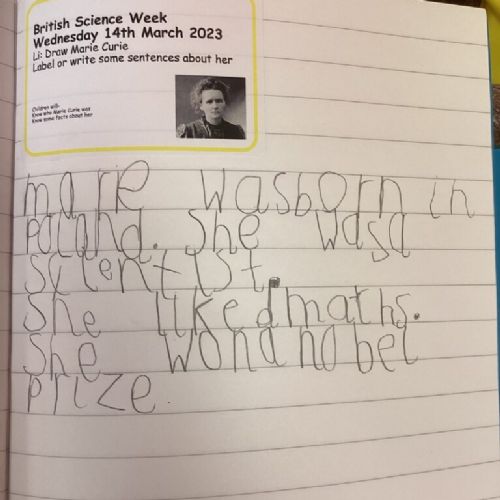 British Science Week
Wednesday 14th March 2023
Li: Draw Marie Curie
Label or write some sentences about her
Children will:
Know who Marie Curie was
Know some facts about her
marie was born in
Poland. She was a
scientist.
She liked maths.
She won a nobel
prize.